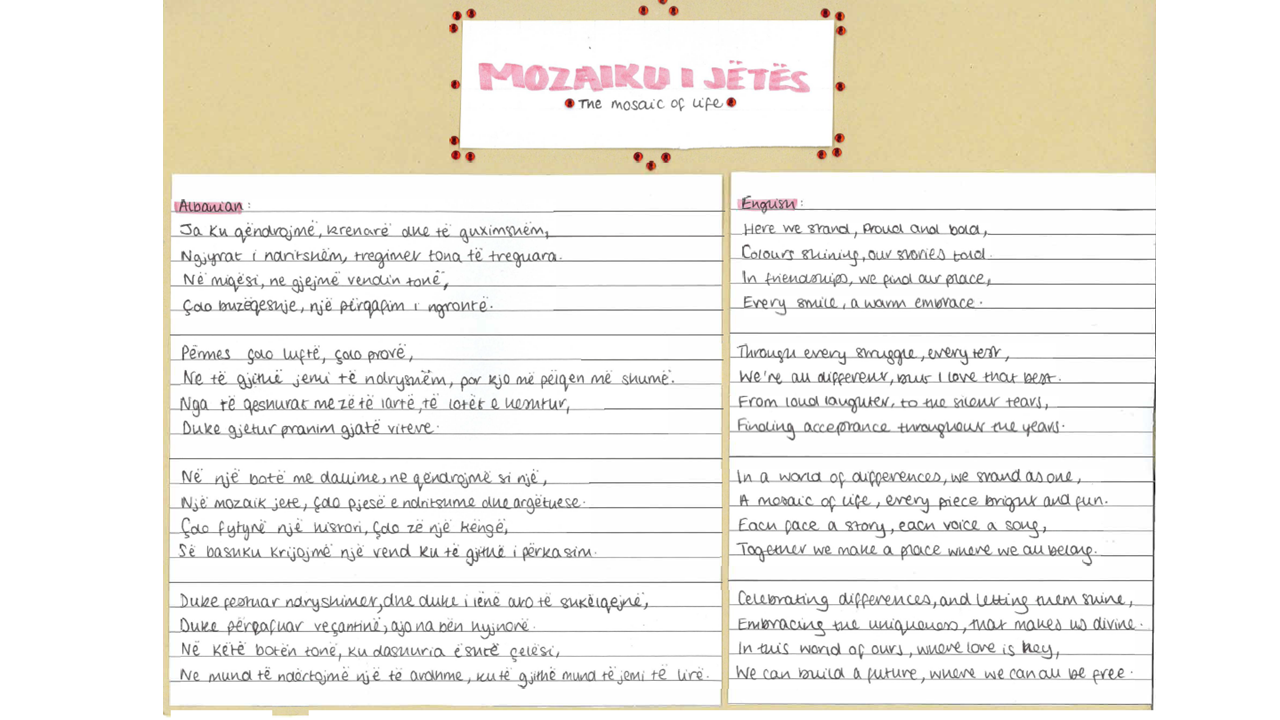 MOZAIKU I JËTËS
The mosaic of life
Albanian:
Ja ku qëndrojmë, krenarë dhe të guximshëm,
Ngjyrat i ndritshëm, tregimet tona të treguara.
Në miqësi, ne gjejmë vendin tonë,
Çdo buzëqeshje, një përqafim i ngrohtë.
Përmes çdo luftë, çdo provë,
Ne të gjithë jemi të ndryshëm, por kjo më pëlqen më shumë.
Nga të qeshurat me zë të lartë, të lotët e heshtur,
Duke gjetur pranim gjatë viteve.
Në një botë me dallime, ne qëndrojmë si një,
Një mozaik jete, çdo pjesë e ndritshme dhe argëtuese.
Çdo fytyrë një histori, çdo zë një këngë,
Së bashku krijojmë një vend ku të gjithë i përkasim.
Duke festuar ndryshimet, dhe duke i lënë ato të shkëlqejnë,
Duke përqafuar veçantinë, ajo na bën hyjnorë.
Në këtë botën tonë, ku dashuria është çelësi,
Ne mund të ndërtojmë një të ardhme, ku të gjithë mund të jemi të lirë.
English:
Here we stand, proud and bold,
Colours shining, our stories told.
In friendships, we find our place,
Every smile, a warm embrace.
Through every struggle, every test,
We're all different, but I love that best.
From loud laughter, to the silent tears,
Finding acceptance throughout the years.
In a world of differences, we stand as one,
A mosaic of life, every piece bright and fun.
Each face a story, each voice a song,
Together we make a place where we all belong.
Celebrating differences, and letting them shine,
Embracing the uniqueness, that makes us divine.
In this world of ours, where love is key,
We can build a future, where we can all be free.